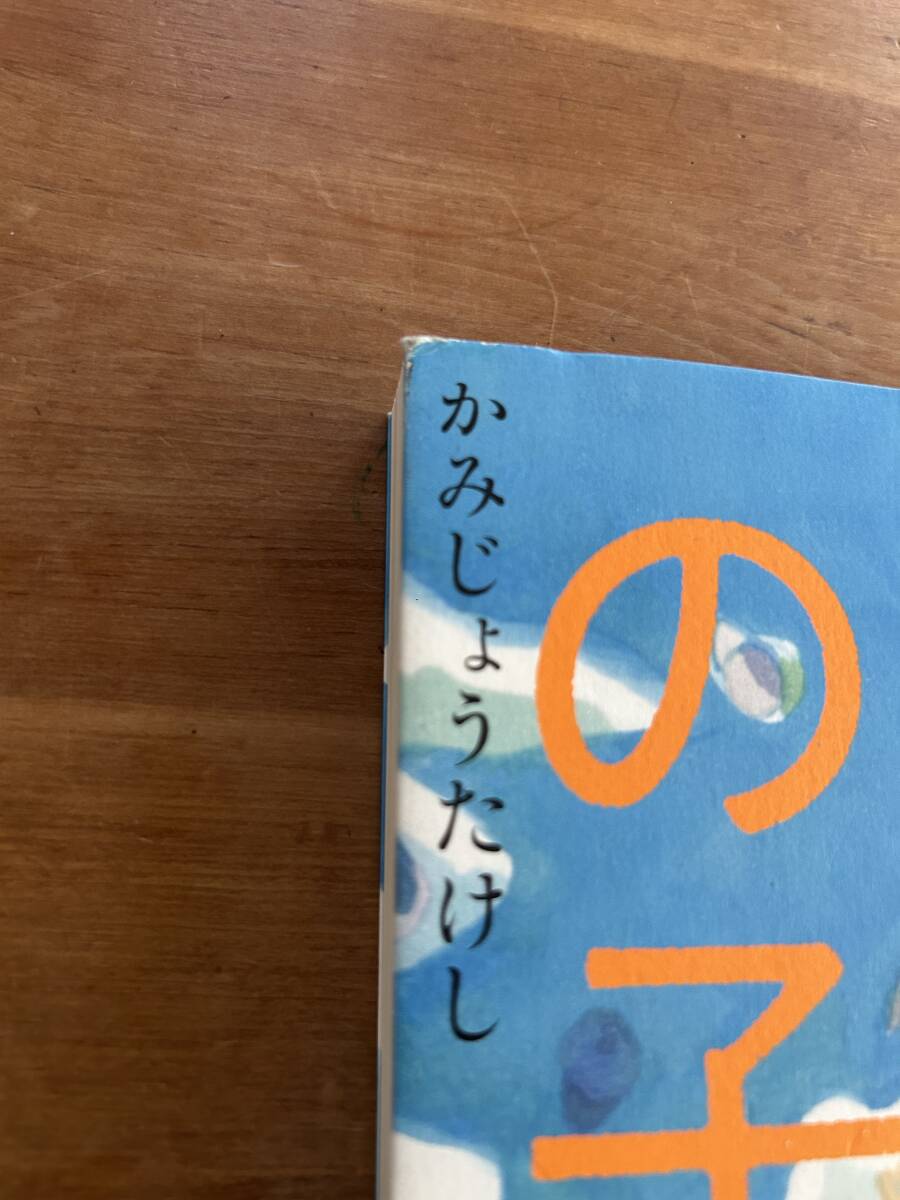 の子
かみじょうたけし